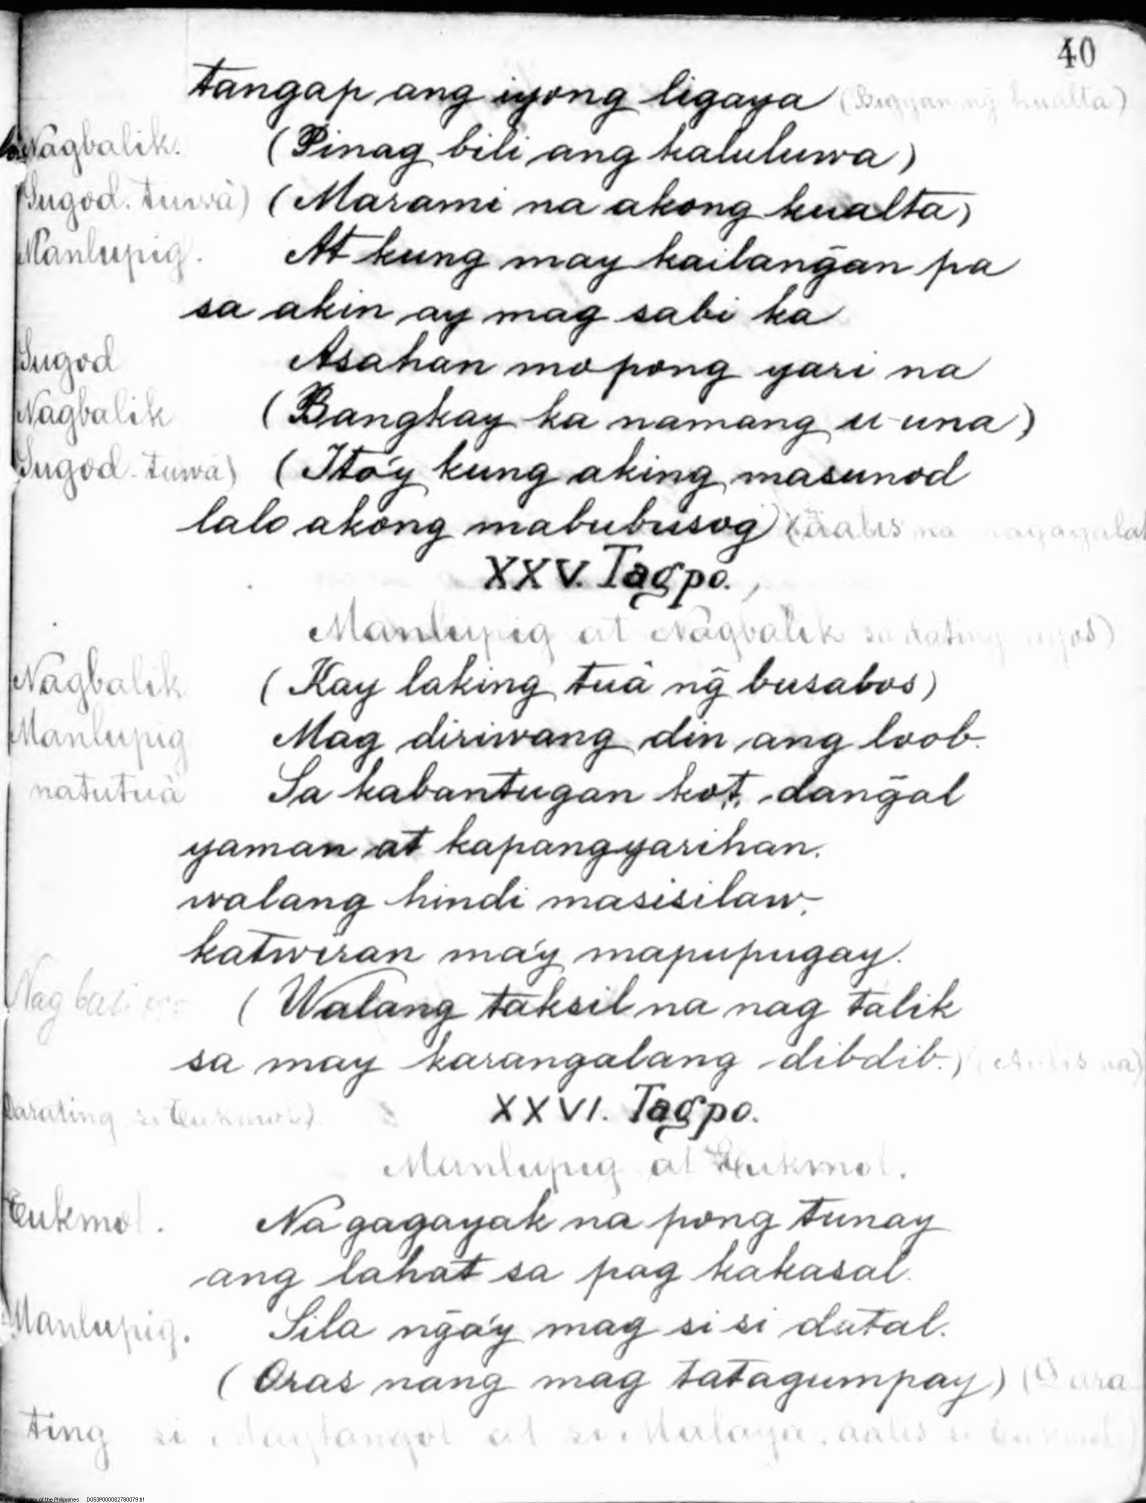 40
tangap ang iyong ligaya (Bigyan ng̃ kualta)
Nagbalik. (Pinag bili ang kaluluwa)
Sugod. tuwâ) (Marami na akong kualta)
Manlupig. At kung may kailang̃an pa
sa akin ay mag sabi ka
Sugod Asahan mo pong yari na
Nagbalik (Bangkay ka namang u-una)
Sugod. tuwâ) (Itó'y kung aking masunod
lalo akong mabubusog) (Aalis na nagagalak
XXV. Tagpo.
Manlupig at Nagbalik sa dating ayos)
Nagbalik (Kay laking tuâ ng̃ busabos)
Manlupig Mag diriwang din ang loob.
natutuâ Sa kabantugan ko't, dang̃al
yaman at kapangyarihan.
walang hindi masisilaw,
katwiran ma'y mapupugay.
Nagbalik (Walang taksil na nag talik
sa may karangalang dibdib.) (Aalis na)
Darating si Cukmol) XXVI. Tagpo.
Manlupig at Cukmol.
Cukmol. Na gagayak na pong tunay
ang lahat sa pag kakasal.
Manlupig. Sila ng̃a'y mag si si datal.
(Oras nang mag tatagumpay) (Dara
ting si Magtangol at si Malaya, aalis si Cukmol)
of the Philippines